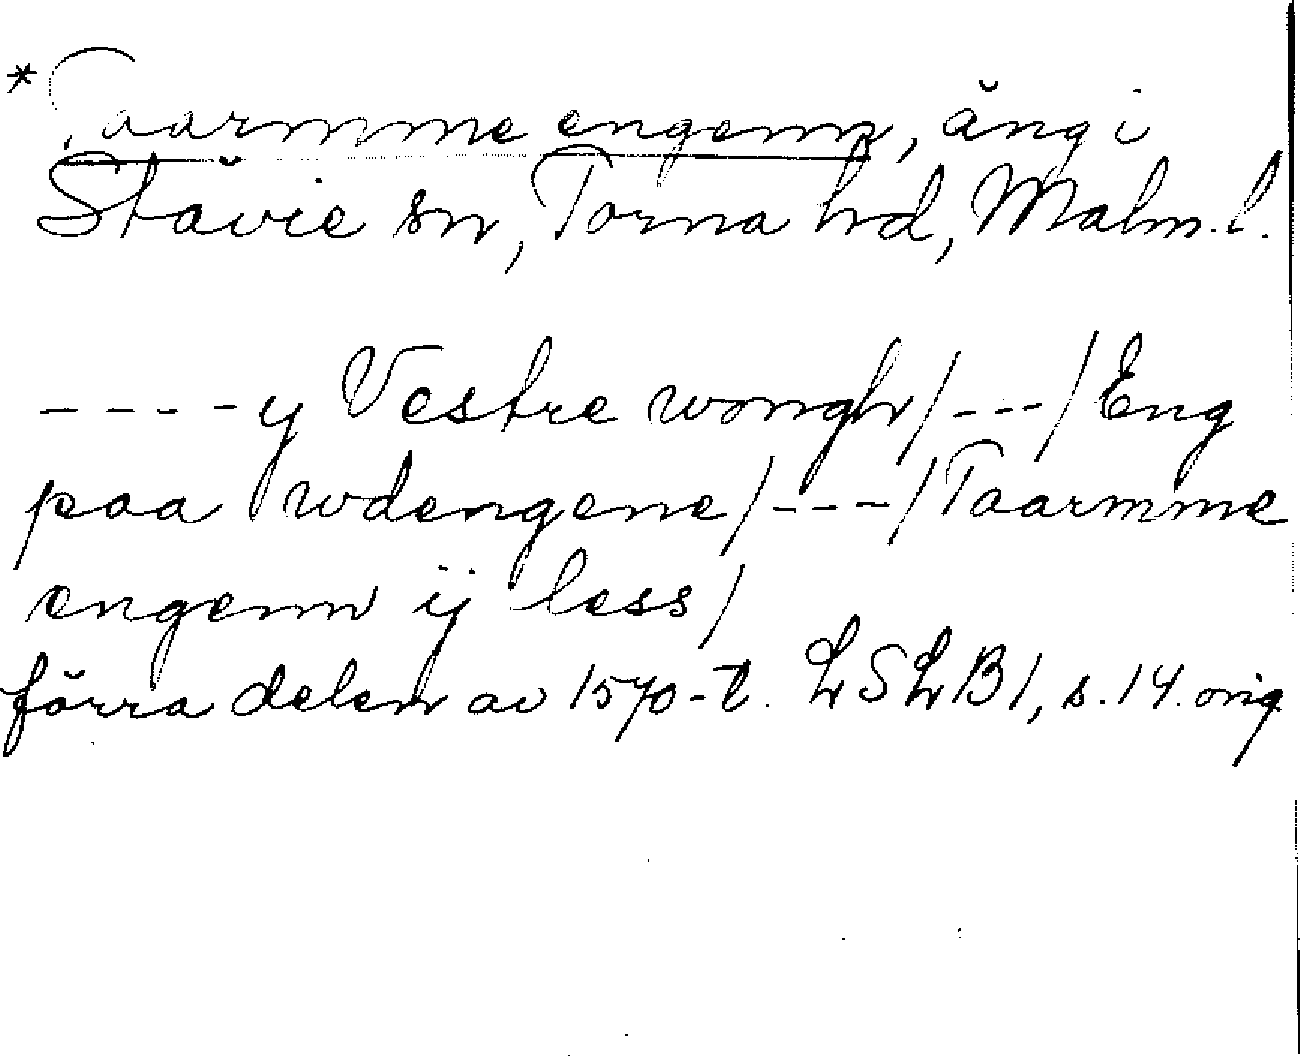 * Taarmme engenn, äng i
Stävie sn, Torna hd, Malm. l.
- - - - y Vestre wongh/ - - - /Eng
paa wdengene/ - - - /Taarmme
engenn ij less/
förra delen av 1570-t. LSLB1, s. 14. orig.